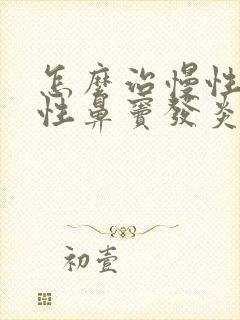 怎麼治慢性
性鼻竇發炎
初壹